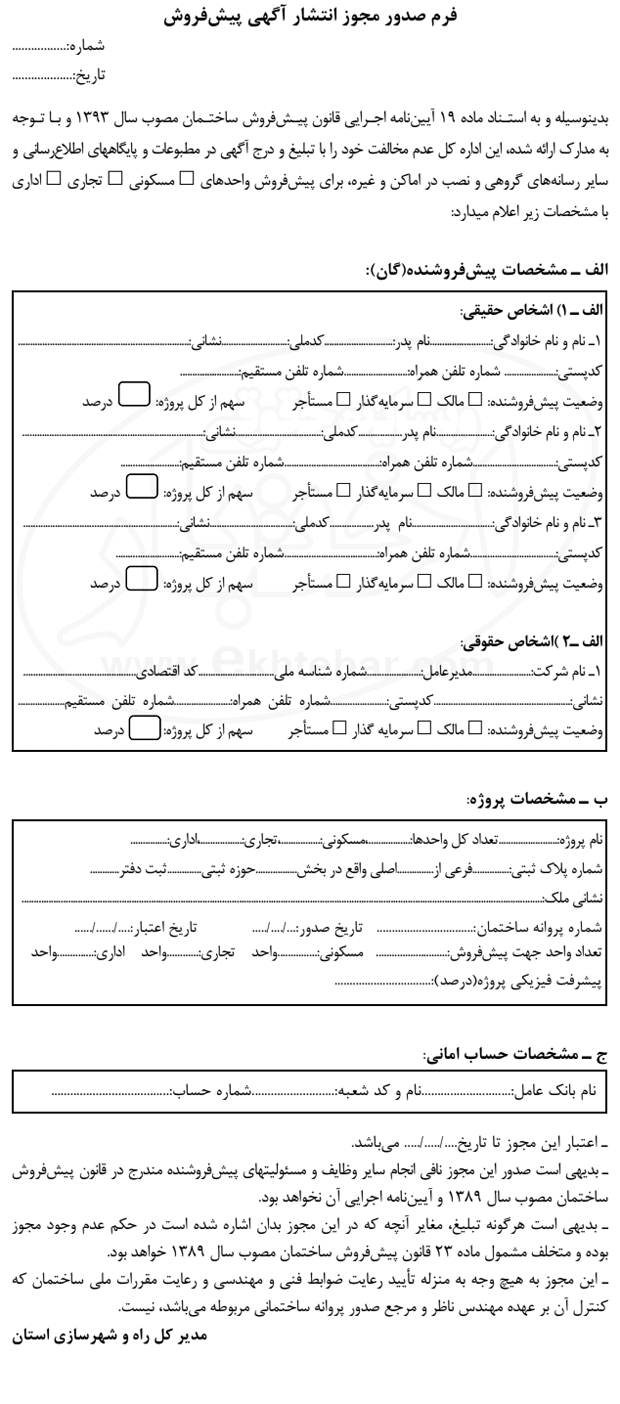 فرم صدور مجوز انتشار آگهی پیش‌فروش
شماره:.................
تاریخ:...................
بدینوسیله و به استناد ماده ۱۹ آیین‌نامه اجرایی قانون پیش‌فروش ساختمان مصوب سال ۱۳۹۳ و با توجه
به مدارک ارائه شده، این اداره کل عدم مخالفت خود را با تبلیغ و درج آگهی در مطبوعات و پایگاههای اطلاع‌رسانی و
سایر رسانه‌های گروهی و نصب در اماکن و غیره، برای پیش‌فروش واحدهای □ مسکونی □ تجاری □ اداری
با مشخصات زیر اعلام میدارد:
الف ــ مشخصات پیش‌فروشنده(گان):
الف ــ ۱) اشخاص حقیقی:
۱ـ نام و نام خانوادگی:....................نام پدر:......................کدملی:.....................نشانی:.......................................................
کدپستی:................. شماره تلفن همراه:.....................شماره تلفن مستقیم:...................
وضعیت پیش‌فروشنده: □ مالک □ سرمایه‌گذار □ مستأجر سهم از کل پروژه: □ درصد
۲ـ نام و نام خانوادگی:..................نام پدر....................کدملی:...........................نشانی:..........................................................
کدپستی:...........................شماره تلفن همراه:...............................شماره تلفن مستقیم:...................
وضعیت پیش‌فروشنده: □ مالک □ سرمایه‌گذار □ مستأجر سهم از کل پروژه: □ درصد
۳ـ نام و نام خانوادگی:..........................نام پدر..............کدملی:...........................نشانی:..................................................
کدپستی:............................شماره تلفن همراه:..............................شماره تلفن مستقیم:.....................
وضعیت پیش‌فروشنده: □ مالک □ سرمایه‌گذار □ مستأجر سهم از کل پروژه: □ درصد
الف ــ۲ )اشخاص حقوقی:
www.ekhtebar.com
۱ـ نام شرکت:...................مدیرعامل:.................شماره شناسه ملی.........................کد اقتصادی....................................
نشانی:............................................کدپستی:..................شماره تلفن همراه:..................شماره تلفن مستقیم...............
وضعیت پیش‌فروشنده: □ مالک □ سرمایه گذار □ مستأجر سهم از کل پروژه: □ درصد
ب ــ مشخصات پروژه:
نام پروژه:...................تعداد کل واحدها:..............،مسکونی:.............،تجاری:..............،اداری:............
شماره پلاک ثبتی:............فرعی از............اصلی واقع در بخش.............حوزه ثبتی...........ثبت دفتر..........
نشانی ملک:...............................................................................................................................
شماره پروانه ساختمان:................................ تاریخ صدور:.../..../..... تاریخ اعتبار:..../....../......
تعداد واحد جهت پیش‌فروش:........................ مسکونی:.............واحد تجاری:...........واحد اداری:............واحد
پیشرفت فیزیکی پروژه(درصد):................................
ج ــ مشخصات حساب امانی:
نام بانک عامل:............................نام و کد شعبه:..........................شماره حساب:.....................................
ـ اعتبار این مجوز تا تاریخ..../...../..... می‌باشد.
ـ بدیهی است صدور این مجوز نافی انجام سایر وظایف و مسئولیتهای پیش‌فروشنده مندرج در قانون پیش‌فروش
ساختمان مصوب سال ۱۳۸۹ و آیین‌نامه اجرایی آن نخواهد بود.
ـ بدیهی است هرگونه تبلیغ، مغایر آنچه که در این مجوز بدان اشاره شده است در حکم عدم وجود مجوز
بوده و متخلف مشمول ماده ۲۳ قانون پیش‌فروش ساختمان مصوب سال ۱۳۸۹ خواهد بود.
ـ این مجوز به هیچ وجه به منزله تأیید رعایت ضوابط فنی و مهندسی و رعایت مقررات ملی ساختمان که
کنترل آن بر عهده مهندس ناظر و مرجع صدور پروانه ساختمانی مربوطه می‌باشد، نیست.
مدیر کل راه و شهرسازی استان